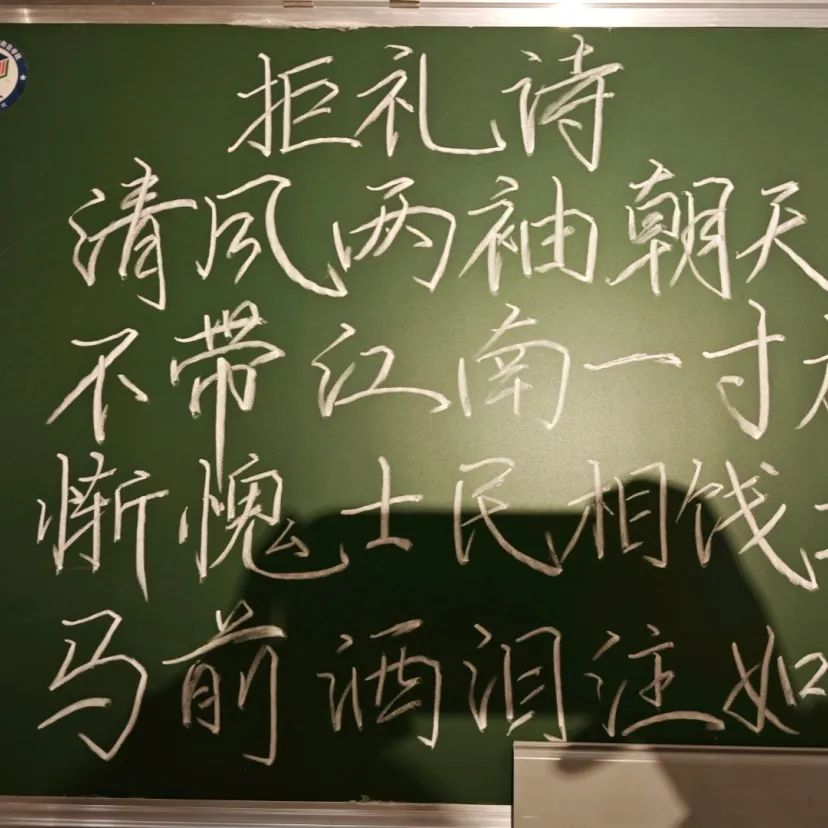 拒礼诗
清风两袖朝天
不带江南一寸
惭愧士民相饯
马前洒泪注如